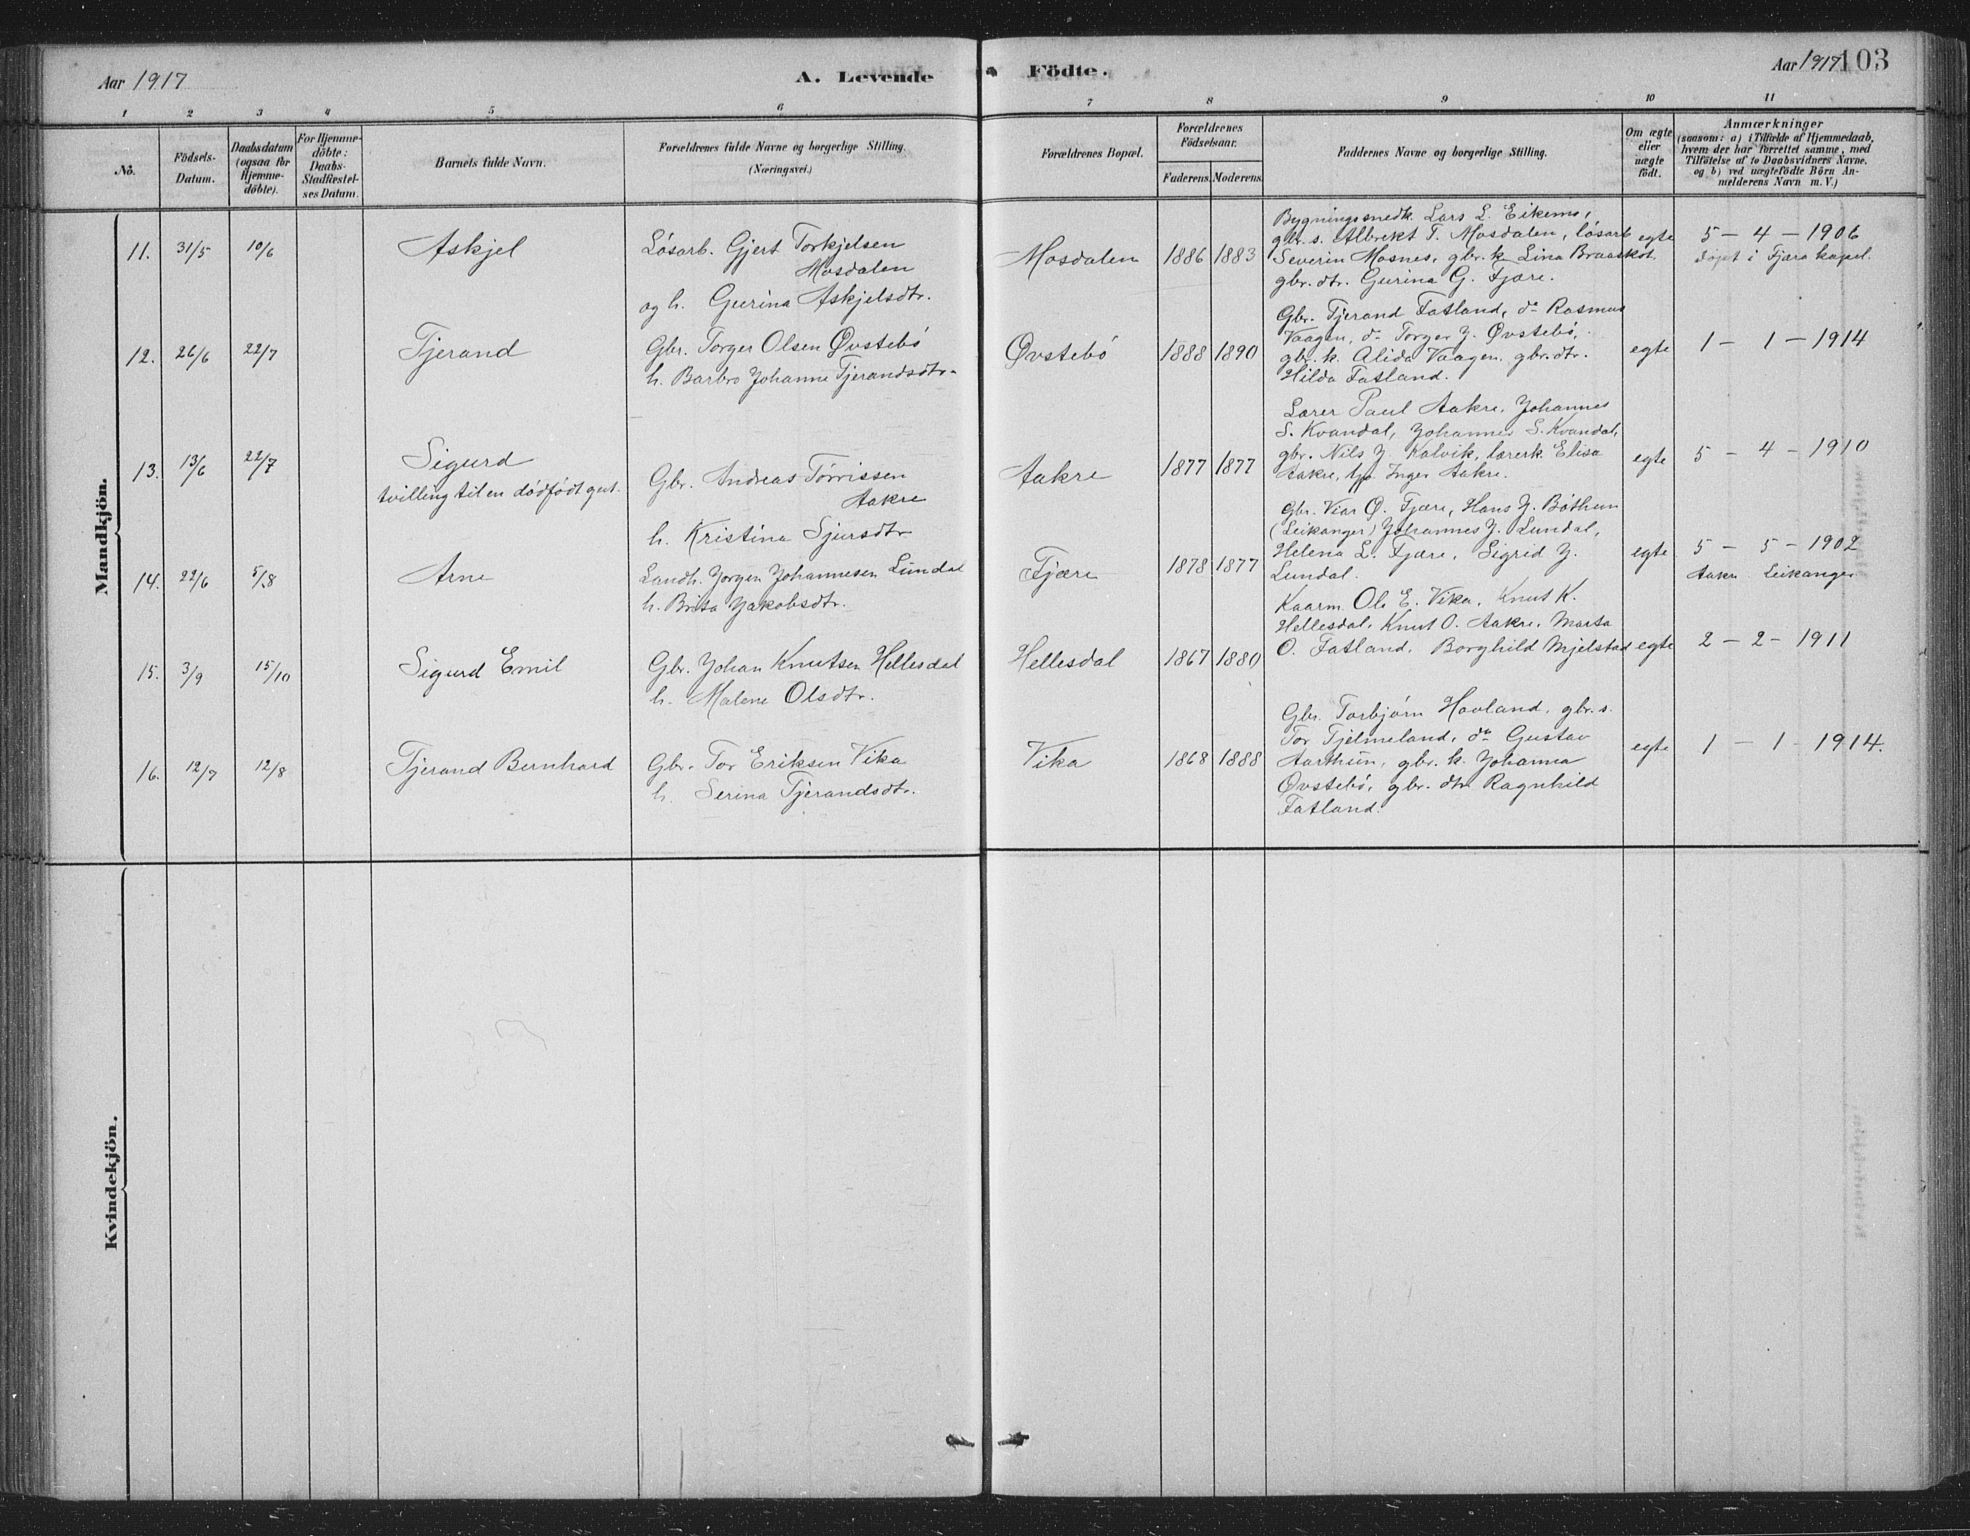 Aar 1917
A. Levende Födte.
Aar 1917 103
1 2 3 4 5 6 7 8 9 10 11
No.
Födsels-Datum.
Daabsdatum (ogsaa for Hjemme-döbte).
For Hjemme-döbte: Daabs-Stadfæstel-ses Datum.
Barnets fulde Navn.
Forældrenes fulde Navne og borgerlige Stilling.
(Næringsvei.)
Forældrenes Bopæl.
Forældrenes Födselsaar.
Faderens. Moderens.
Faddernes Navne og borgerlige Stilling.
Om ægte eller uægte födt.
Anmærkninger
(saasom: a) i Tilfælde af Hjemmedaab,
hvem der har forrettet samme, med
Tilföielse af to Daabsvidners Navne.
og b) ved uægtefödte Börn An-
melderens Navn m. V.)
Mandkjön.
11. 31/5 10/6 Askjel
Løsarb. Gjert Torkjelsen
Mosdalen
og h. Gurina Askjelsdtr.
Mosdalen 1886 1883
Bygningssnedk. Lars L. Eikemo,
gbr. s. Albrekt T. Mosdalen, løsarb
Severin Mosnes, gbr. k. Lina Braaskot
gbr. dtr. Gurina G. Fjære.
egte
5 - 4 - 1906
Døpt i Fjæra kapel.
12. 26/6 22/7 Tjerand
Gbr. Torger Olsen Øvstebö
h. Barbro Johanne Tjerandsdtr.
Øvstebö 1888 1890
Gbr. Tjerand Fatland, do Rasmus
Vaagen, do Torger J. Øvstebö,
gbr. k. Alida Vaagen, gbr. dtr.
Hilda Fatland.
egte
1 - 1 - 1914
13. 13/6 22/7 Sigurd
tvilling til en dödfödt gut.
Gbr. Andreas Tørrissen
Aakre
h. Kristina Sjursdtr
Aakre 1877 1877
Lærer Paul Aakre, Johannes
S. Kvandal, Johannes S. Kvandal,
gbr. Nils J. Kalvik, lærerk. Elisa
Aakre, Inger Aakre.
egte
5 - 4 - 1910
14. 22/6 5/8 Arne
Landh. Jørgen Johannesen Lundal
h. Brita Jakobsdtr.
Fjære 1878 1877
Gbr. Viar Ø. Fjære, Hans J. Böthun
(Leikanger) Johannes J. Lundal,
Helena L. Fjære, Sigrid J.
Lundal.
egte
5 - 5 - 1902
Aakr. Leikanger
15. 3/9 15/10 Sigurd Emil
Gbr. Johan Knutsen Hellesdal
h. Malene Olsdtr.
Hellesdal 1867 1880
Kaarm. Ole E. Vika, Knut K.
Hellesdal, Knut O. Aakre, Marta
O. Fatland, Borghild Mjelstad
egte
2 - 2 - 1911
16. 12/7 12/8 Tjerand Bernhard
Gbr. Tor Eriksen Vika
h. Serina Tjerandsdtr.
Vika 1868 1888
Gbr. Torbjørn Hovland, gbr. s.
Tor Tjelmeland, do Gustav
Aarthun, gbr. k. Johanna
Øvstebö, gbr. dtr. Ragnhild
Fatland.
egte
1 - 1 - 1914.
Kvindekjön.